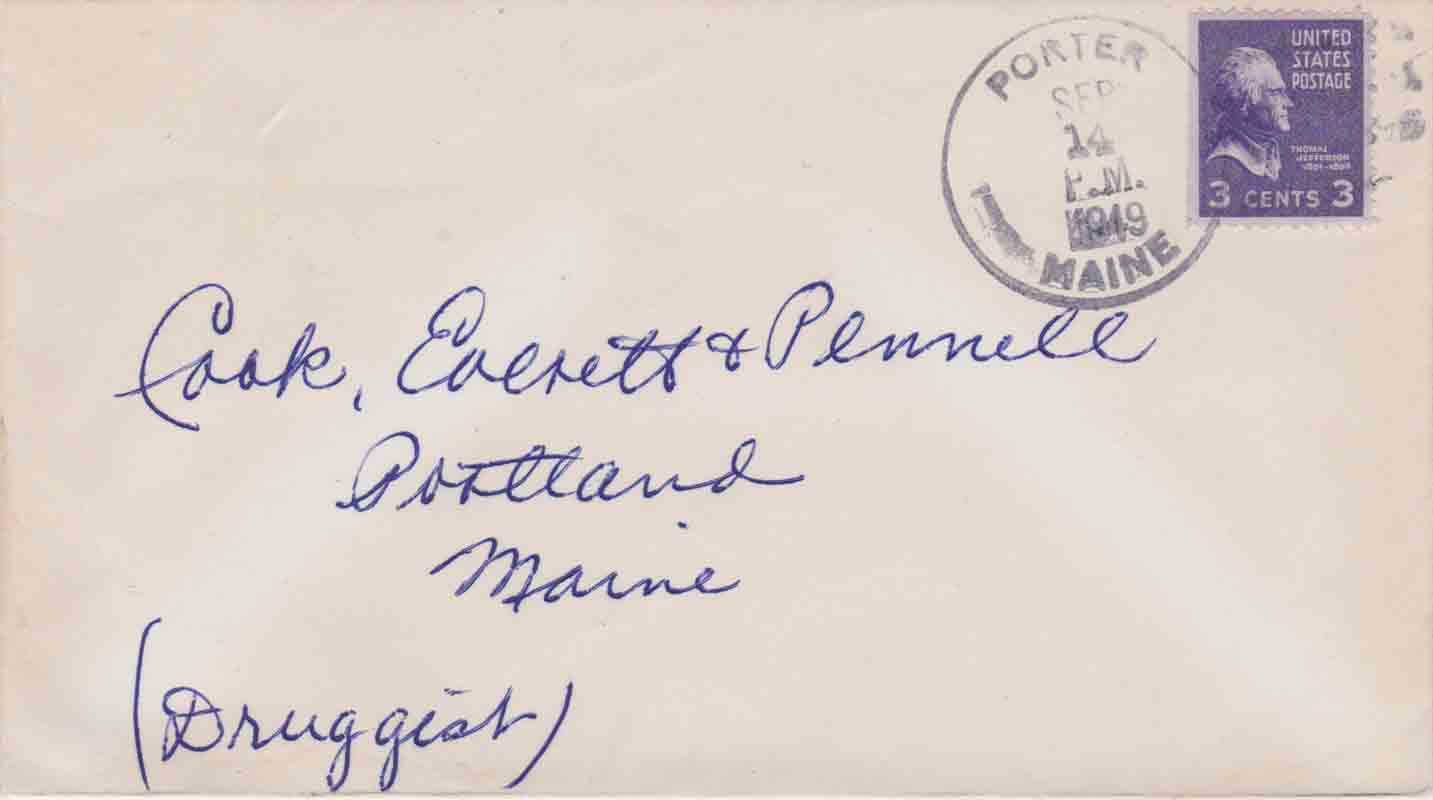 PORTER
SEP
14
P.M.
1949
MAINE
UNITED
STATES
POSTAGE
THOMAS
JEFFERSON
1801-1809
3 CENTS 3
Cook, Everett & Pennell
Portland
Maine
(Druggist)